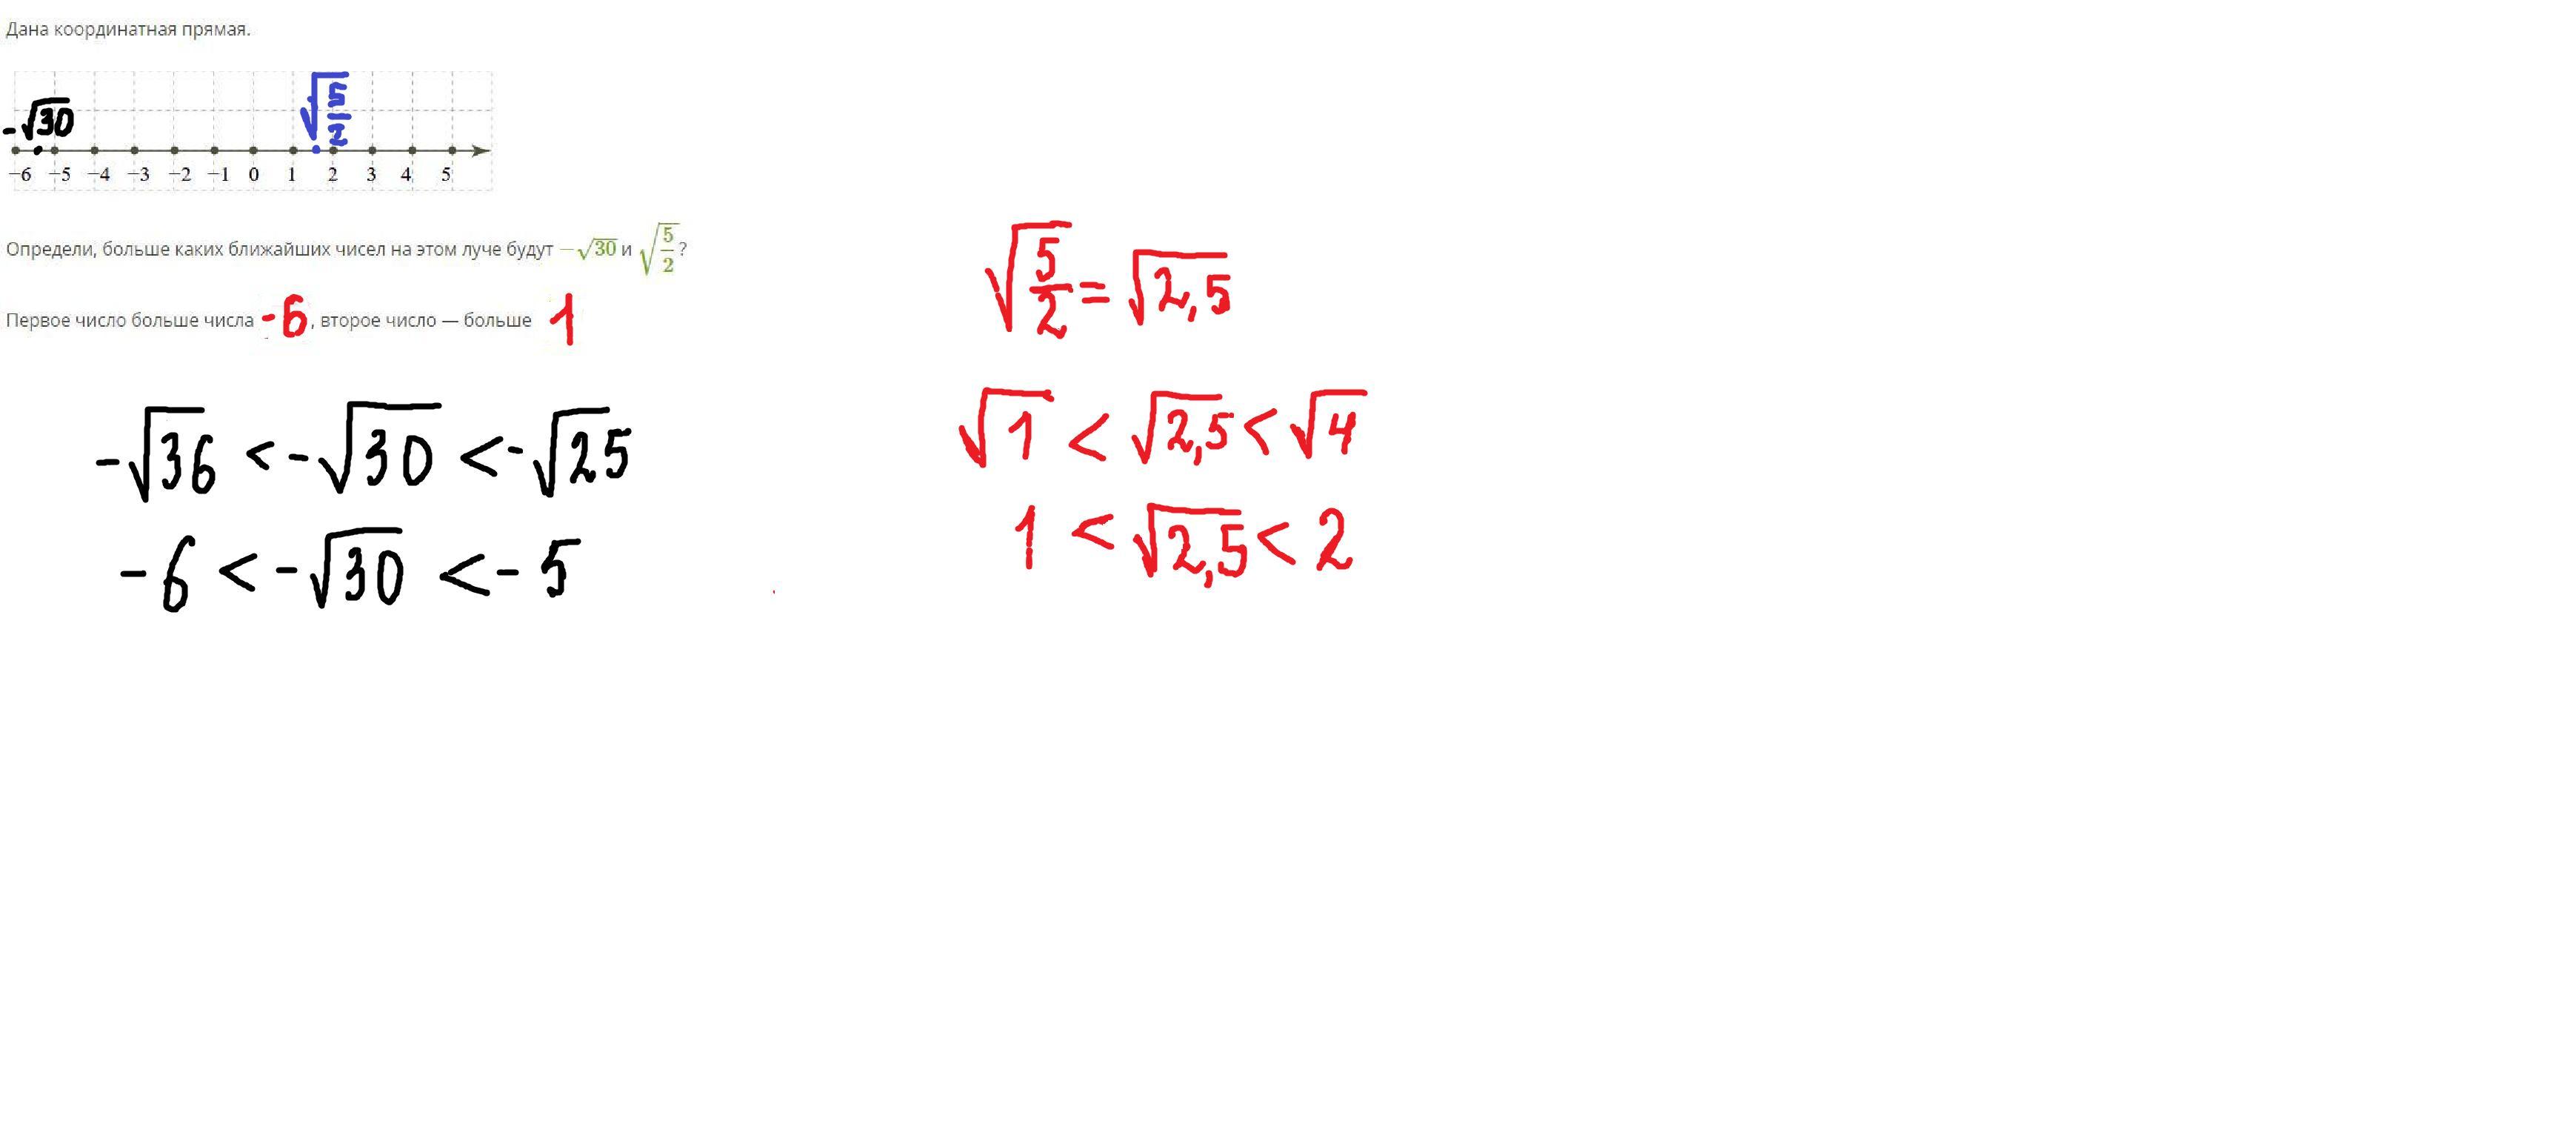 Дана координатная прямая.
-√30 √(5/2)
−6 −5 −4 −3 −2 −1 0 1 2 3 4 5
Определи, больше каких ближайших чисел на этом луче будут −√30 и √(5/2)?
Первое число больше числа -6, второе число — больше 1
-√36 < -√30 < -√25
-6 < -√30 < -5
√(5/2) = √2,5
√1 < √2,5 < √4
1 < √2,5 < 2